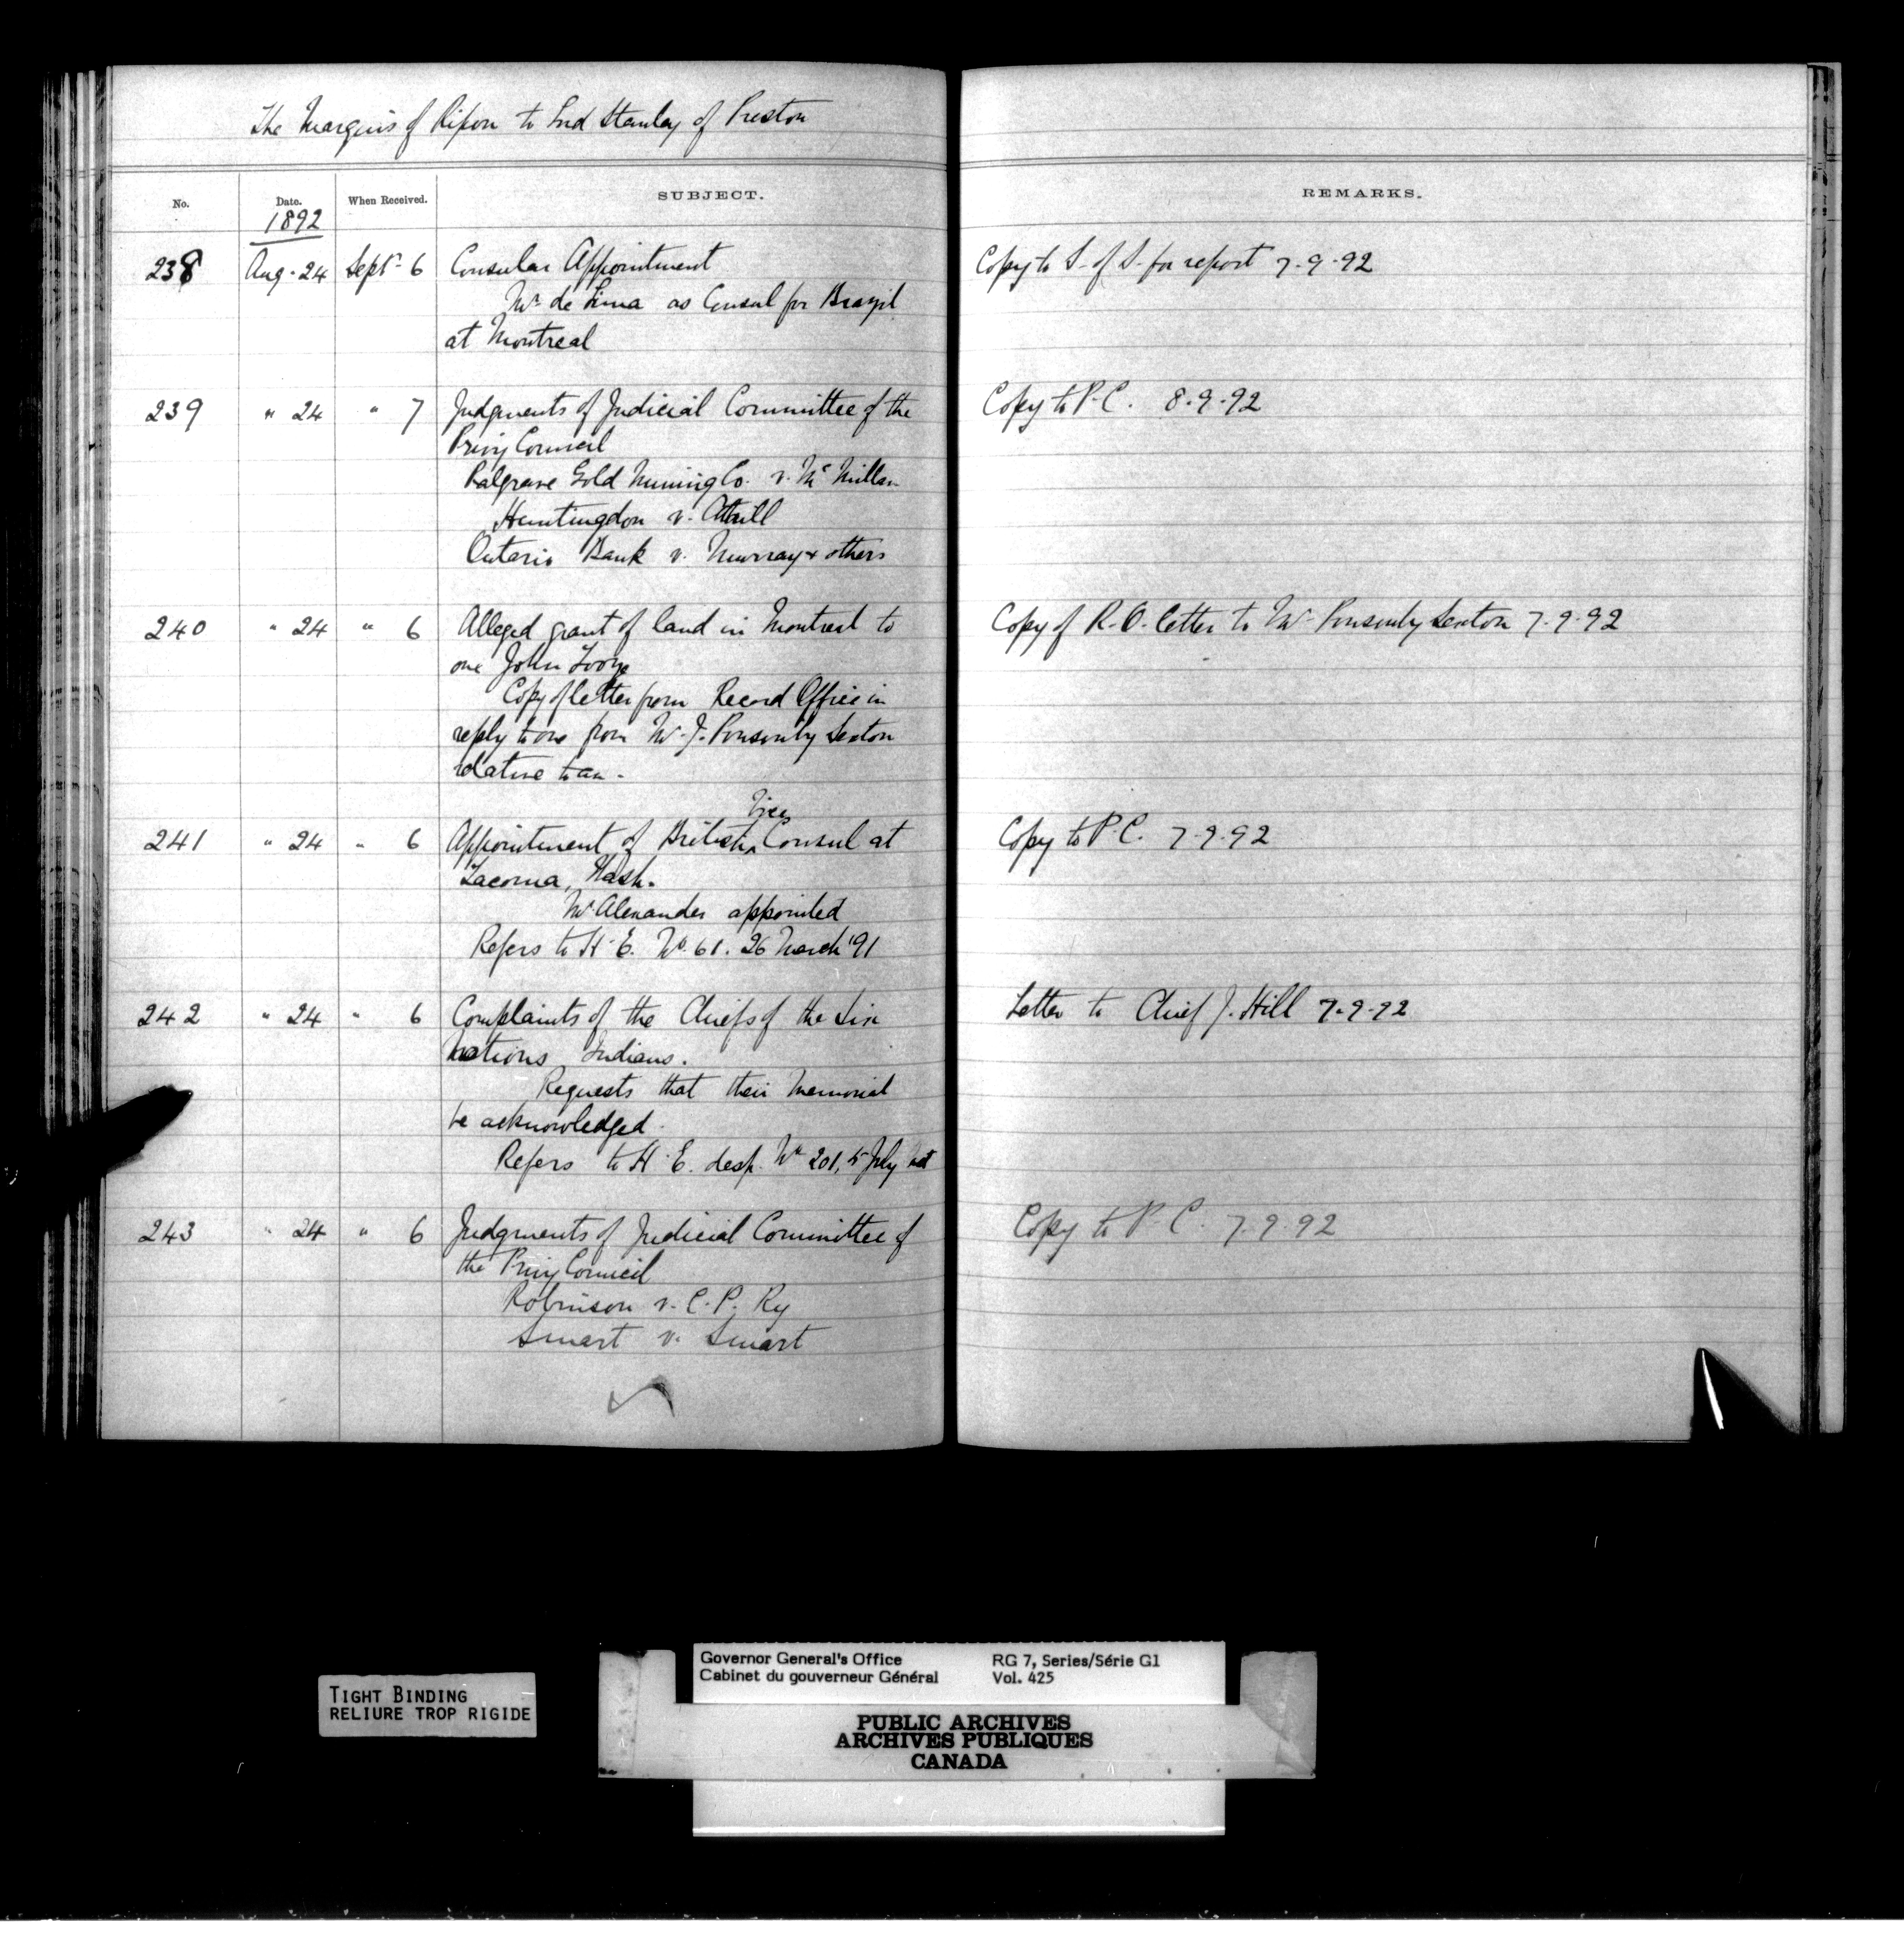 The Marquis of Ripon to Lord Stanley of Preston
No. Date. When Received. SUBJECT. REMARKS.
1892
238 Aug. 24 Sept. 6 Consular Appointment Copy to S. of S. for report 7.9.92
Mr de Lima as Consul for Brazil
at Montreal
239 " 24 " 7 Judgments of Judicial Committee of the Copy to P.C. 8.9.92
Privy Council
Palgrave Gold Mining Co. v. McMillan
Huntingdon v. Attrill
Ontario Bank v. Murray & others
240 " 24 " 6 Alleged grant of land in Montreal to Copy of R.O. letter to Mr Ponsonby Sexton 7.9.92
one John
Copy of letter from Record Office in
reply to one from Mr J. Ponsonby Sexton
relative to an -
Vice
241 " 24 " 6 Appointment of British ^ Consul at Copy to P.C. 7.9.92
Tacoma, Wash.
Mr Alexander appointed
Refers to H.E. No. 61. 26 March '91
242 " 24 " 6 Complaints of the Chiefs of the Six Letter to Chief J. Hill 7.9.92
Nations Indians.
Requests that their Memorial
be acknowledged.
Refers to H.E. desp. No 201, 5 July
243 " 24 " 6 Judgments of Judicial Committee of Copy to P.C. 7.9.92
the Privy Council
Robinson v. C.P. Ry
Smart v. Smart
TIGHT BINDING
RELIURE TROP RIGIDE
Governor General's Office RG 7, Series/Série G1
Cabinet du gouverneur Général Vol. 425
PUBLIC ARCHIVES
ARCHIVES PUBLIQUES
CANADA